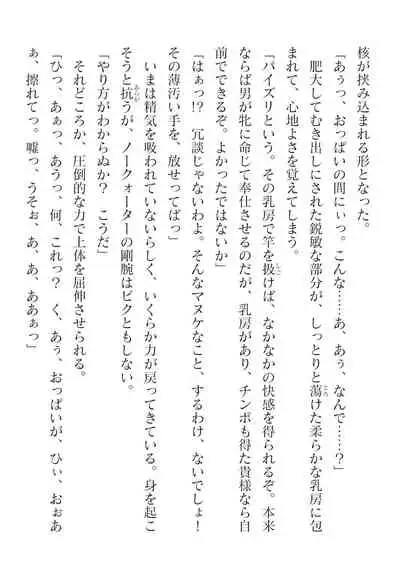 核が挟み込まれる形となった。
「あぅっ、おっぱいの間にぃっ。こんな……あ、あぅ、なんで……？」
肥大してむき出しにされた鋭敏な部分が、しっとりと蕩けた柔らかな乳房に包
まれて、心地よさを覚えてしまう。
「パイズリという。その乳房で竿を扱けば、なかなかの快感を得られるぞ。本来
ならば男が牝に命じて奉仕させるのだが、乳房があり、チンポも得た貴様なら自
前でできるぞ。よかったではないか」
「はぁっ!?　冗談じゃないわよ。そんなマヌケなこと、するわけ、ないでしょ！
その薄汚い手を、放せってばっ」
いまは精気を吸われていないらしく、いくらか力が戻ってきている。身を起こ
そうと抗うが、ノークォーターの剛腕はビクともしない。
「やり方がわからぬか？　こうだ」
それどころか、圧倒的な力で上体を屈伸させられる。
「ひっ、あぁっ、あうっ、何、これっ？　く、あぅ、おっぱいが、ひぃ、おぉあ
ぁ、擦れてっ。嘘っ、うそぉ、あ、あ、ああぁっ」